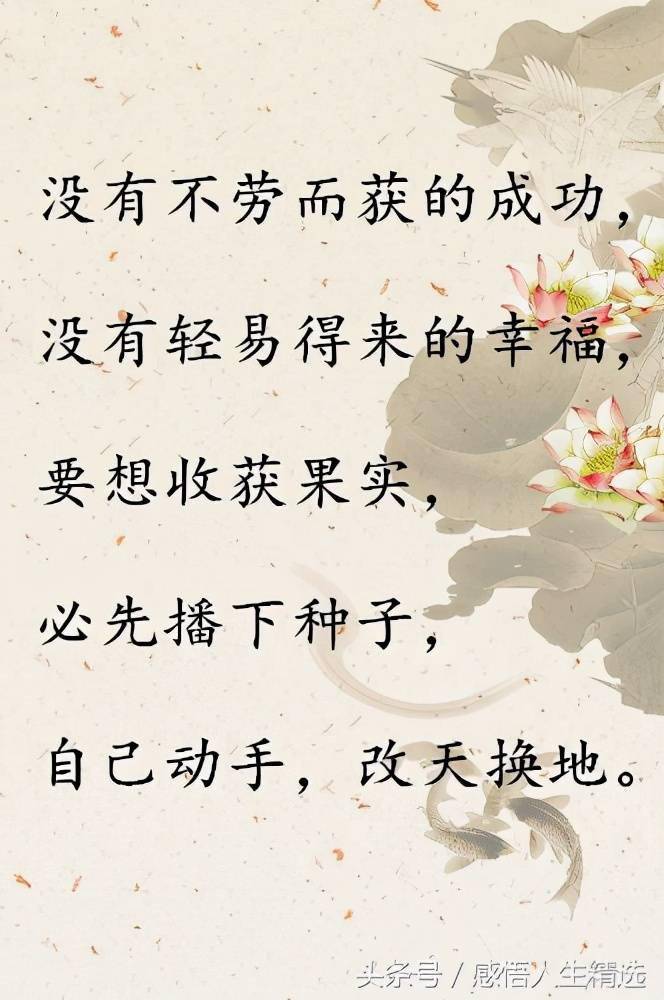 没有不劳而获的成功，
没有轻易得来的幸福，
要想收获果实，
必先播下种子，
自己动手，改天换地。
头条号 / 感悟人生精选